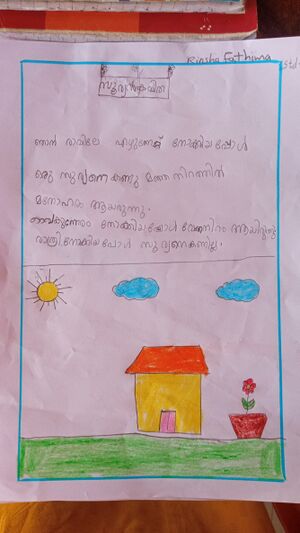 Rinsha Fathima
std-
സൂര്യൻകവിത
ഞാൻ രാവിലെ എഴുന്നേറ്റ് നോക്കിയപ്പോൾ
ഒരു സൂര്യനെ കണ്ടു മഞ്ഞ നിറത്തിൽ
മനോഹരം ആയരുന്നു.
നോക്കിയപ്പോൾ ആയിരുന്നു
രാത്രി നോക്കിയപോൾ സൂര്യനെകണ്ടില്ല.